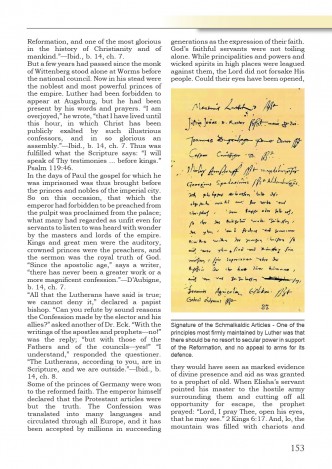 Reformation, and one of the most glorious
in the history of Christianity and of
mankind."—Ibid., b. 14, ch. 7.
But a few years had passed since the monk
of Wittenberg stood alone at Worms before
the national council. Now in his stead were
the noblest and most powerful princes of
the empire. Luther had been forbidden to
appear at Augsburg, but he had been
present by his words and prayers. "I am
overjoyed," he wrote, "that I have lived until
this hour, in which Christ has been
publicly exalted by such illustrious
confessors, and in so glorious an
assembly."—Ibid., b. 14, ch. 7. Thus was
fulfilled what the Scripture says: "I will
speak of Thy testimonies ... before kings."
Psalm 119:46.
In the days of Paul the gospel for which he
was imprisoned was thus brought before
the princes and nobles of the imperial city.
So on this occasion, that which the
emperor had forbidden to be preached from
the pulpit was proclaimed from the palace;
what many had regarded as unfit even for
servants to listen to was heard with wonder
by the masters and lords of the empire.
Kings and great men were the auditory,
crowned princes were the preachers, and
the sermon was the royal truth of God.
"Since the apostolic age," says a writer,
"there has never been a greater work or a
more magnificent confession."—D'Aubigne,
b. 14, ch. 7.
"All that the Lutherans have said is true;
we cannot deny it," declared a papist
bishop. "Can you refute by sound reasons
the Confession made by the elector and his
allies?" asked another of Dr. Eck. "With the
writings of the apostles and prophets—no!"
was the reply; "but with those of the
Fathers and of the councils—yes!" "I
understand," responded the questioner.
"The Lutherans, according to you, are in
Scripture, and we are outside."—Ibid., b.
14, ch. 8.
Some of the princes of Germany were won
to the reformed faith. The emperor himself
declared that the Protestant articles were
but the truth. The Confession was
translated into many languages and
circulated through all Europe, and it has
been accepted by millions in succeeding
generations as the expression of their faith.
God's faithful servants were not toiling
alone. While principalities and powers and
wicked spirits in high places were leagued
against them, the Lord did not forsake His
people. Could their eyes have been opened,
Signature of the Schmalkaldic Articles - One of the
principles most firmly maintained by Luther was that
there should be no resort to secular power in support
of the Reformation, and no appeal to arms for its
defence.
they would have seen as marked evidence
of divine presence and aid as was granted
to a prophet of old. When Elisha's servant
pointed his master to the hostile army
surrounding them and cutting off all
opportunity for escape, the prophet
prayed: "Lord, I pray Thee, open his eyes,
that he may see." 2 Kings 6:17. And, lo, the
mountain was filled with chariots and
153